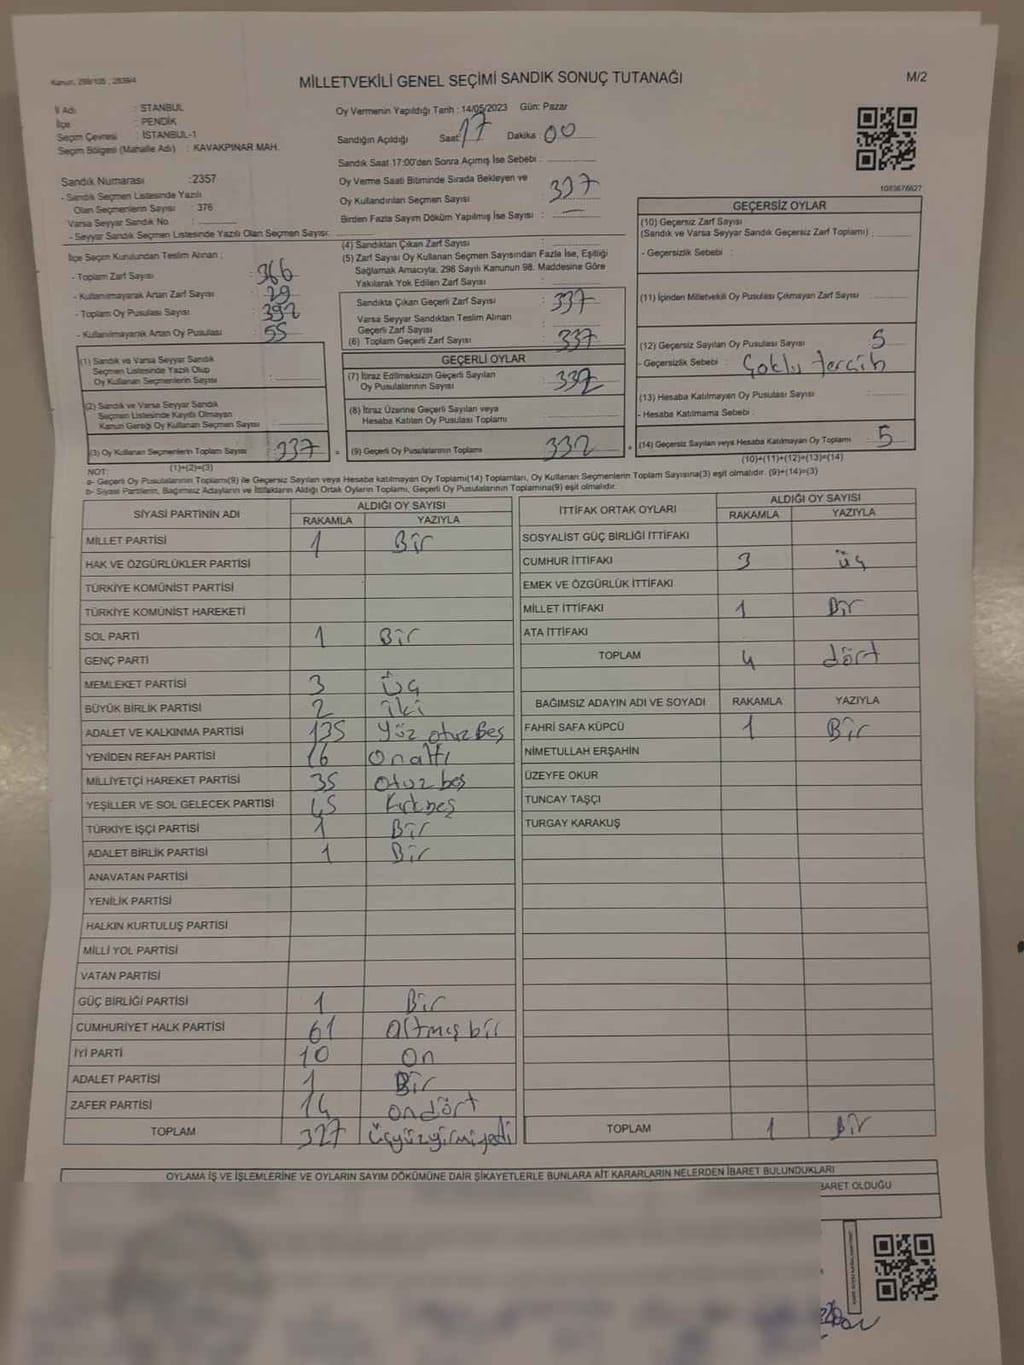 Kanun: 298/105 ; 2839/4
MİLLETVEKİLİ GENEL SEÇİMİ SANDIK SONUÇ TUTANAĞI
M/2
İl Adı : STANBUL
İlçe : PENDİK
Seçim Çevresi : İSTANBUL-1
Seçim Bölgesi (Mahalle Adı) : KAVAKPINAR MAH.
Oy Vermenin Yapıldığı Tarih : 14/05/2023 Gün: Pazar
Sandığın Açıldığı Saat: 17 Dakika : 00
Sandık Saat 17:00'den Sonra Açımış İse Sebebi :
Sandık Numarası : 2357
- Sandık Seçmen Listesinde Yazılı
Olan Seçmenlerin Sayısı : 376
Varsa Seyyar Sandık No :
- Seyyar Sandık Seçmen Listesinde Yazılı Olan Seçmen Sayısı:
Oy Verme Saati Bitiminde Sırada Bekleyen ve
Oy Kullandırılan Seçmen Sayısı : 337
Birden Fazla Sayım Döküm Yapılmış İse Sayısı : —
1083676627
İlçe Seçim Kurulundan Teslim Alınan :
- Toplam Zarf Sayısı : 366
- Kullanılmayarak Artan Zarf Sayısı : 29
- Toplam Oy Pusulası Sayısı : 392
- Kullanılmayarak Artan Oy Pusulası : 55
(1) Sandık ve Varsa Seyyar Sandık
Seçmen Listesinde Yazılı Olup
Oy Kullanan Seçmenlerin Sayısı :
(2) Sandık ve Varsa Seyyar Sandık
Seçmen Listesinde Kayıtlı Olmayan
Kanun Gereği Oy Kullanan Seçmen Sayısı :
(3) Oy Kullanan Seçmenlerin Toplam Sayısı : 337
(1)+(2)=(3)
(4) Sandıktan Çıkan Zarf Sayısı :
(5) Zarf Sayısı Oy Kullanan Seçmen Sayısından Fazla İse, Eşitliği
Sağlamak Amacıyla; 298 Sayılı Kanunun 98. Maddesine Göre
Yakılarak Yok Edilen Zarf Sayısı :
Sandıkta Çıkan Geçerli Zarf Sayısı : 337
Varsa Seyyar Sandıktan Teslim Alınan
Geçerli Zarf Sayısı :
(6) Toplam Geçerli Zarf Sayısı : 337
GEÇERLİ OYLAR
(7) İtiraz Edilmeksizin Geçerli Sayılan
Oy Pusulalarının Sayısı : 332
(8) İtiraz Üzerine Geçerli Sayılan veya
Hesaba Katılan Oy Pusulası Toplamı :
(9) Geçerli Oy Pusulalarının Toplamı : 332
GEÇERSİZ OYLAR
(10) Geçersiz Zarf Sayısı
(Sandık ve Varsa Seyyar Sandık Geçersiz Zarf Toplamı) :
- Geçersizlik Sebebi :
(11) İçinden Milletvekili Oy Pusulası Çıkmayan Zarf Sayısı :
(12) Geçersiz Sayılan Oy Pusulası Sayısı : 5
- Geçersizlik Sebebi : Çoklu tercih
(13) Hesaba Katılmayan Oy Pusulası Sayısı :
- Hesaba Katılmama Sebebi :
(14) Geçersiz Sayılan veya Hesaba Katılmayan Oy Toplamı : 5
(10)+(11)+(12)+(13)=(14)
NOT:
a- Geçerli Oy Pusulalarının Toplamı(9) ile Geçersiz Sayılan veya Hesaba katılmayan Oy Toplamı(14) Toplamları, Oy Kullanan Seçmenlerin Toplam Sayısına(3) eşit olmalıdır. (9)+(14)=(3)
b- Siyasi Partilerin, Bağımsız Adayların ve İttifakların Aldığı Ortak Oyların Toplamı, Geçerli Oy Pusulalarının Toplamına(9) eşit olmalıdır.
SİYASİ PARTİNİN ADI ALDIĞI OY SAYISI
RAKAMLA YAZIYLA
MİLLET PARTİSİ 1 Bir
HAK VE ÖZGÜRLÜKLER PARTİSİ
TÜRKİYE KOMÜNİST PARTİSİ
TÜRKİYE KOMÜNİST HAREKETİ
SOL PARTİ 1 Bir
GENÇ PARTİ
MEMLEKET PARTİSİ 3 Üç
BÜYÜK BİRLİK PARTİSİ 2 iki
ADALET VE KALKINMA PARTİSİ 135 Yüz otuz Beş
YENİDEN REFAH PARTİSİ 16 Onaltı
MİLLİYETÇİ HAREKET PARTİSİ 35 Otuz beş
YEŞİLLER VE SOL GELECEK PARTİSİ 45 Kırkbeş
TÜRKİYE İŞÇİ PARTİSİ 1 Bir
ADALET BİRLİK PARTİSİ 1 Bir
ANAVATAN PARTİSİ
YENİLİK PARTİSİ
HALKIN KURTULUŞ PARTİSİ
MİLLİ YOL PARTİSİ
VATAN PARTİSİ
GÜÇ BİRLİĞİ PARTİSİ 1 Bir
CUMHURİYET HALK PARTİSİ 61 Altmış bir
İYİ PARTİ 10 On
ADALET PARTİSİ 1 Bir
ZAFER PARTİSİ 14 ondört
TOPLAM 327 üçyüzyirmiyedi
İTTİFAK ORTAK OYLARI ALDIĞI OY SAYISI
RAKAMLA YAZIYLA
SOSYALİST GÜÇ BİRLİĞİ İTTİFAKI
CUMHUR İTTİFAKI 3 üç
EMEK VE ÖZGÜRLÜK İTTİFAKI
MİLLET İTTİFAKI 1 Bir
ATA İTTİFAKI
TOPLAM 4 dört
BAĞIMSIZ ADAYIN ADI VE SOYADI RAKAMLA YAZIYLA
FAHRİ SAFA KÜPCÜ 1 Bir
NİMETULLAH ERŞAHİN
ÜZEYFE OKUR
TUNCAY TAŞÇI
TURGAY KARAKUŞ
TOPLAM 1 Bir
OYLAMA İŞ VE İŞLEMLERİNE VE OYLARIN SAYIM DÖKÜMÜNE DAİR ŞİKAYETLERLE BUNLARA AİT KARARLARIN NELERDEN İBARET BULUNDUKLARI
BARET OLDUĞU